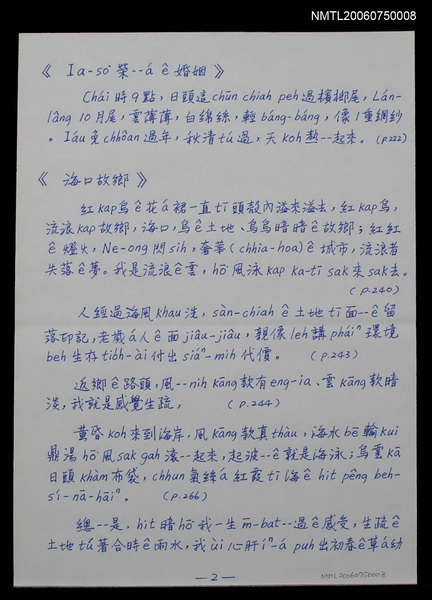 NMTL20060750008
《 Ia-so͘ 榮--á ê 婚姻 》
Chái 時 9 點，日頭這 chūn chiah peh 過檳榔尾，Lán-
lâng 10 月尾，雲薄薄，白綿絲，輕 báng-báng，像 1 重網紗
。Iáu 免 chhôan 過年，秋清 tú 過，天 koh 熱--起來。(P.222)
《 海口故鄉 》
紅 kap 烏 ê 花 á 裙一直 tī 頭殼內溢來溢去，紅 kap 烏，
流浪 kap 故鄉，海口，烏 ê 土地、烏烏暗暗 ê 故鄉；紅紅
ê 燈火，Ne-ong 閃 sih，奢華 (chhia-hoa) ê 城市，流浪者
失落 ê 夢。我是流浪 ê 雲，hō͘ 風泳 kap ka-tī sak 來 sak 去。
(P.240)
人經過海風 khau 洗，sàn-chiah ê 土地 tī 面--ê 留
落印記，老歲 á 人 ê 面 jiâu-jiâu，親像 leh 講 pháiⁿ 環境
beh 生存 tio̍h-ài 付出 siáⁿ-mih 代價。 (P.243)
返鄉 ê 路頭，風--nih kāng 款有 eng-ia、雲 kāng 款暗
淡，我就是感覺生疏， (P.244)
黃昏 koh 來到海岸，風 kāng 款真 thàu，海水 bē 輸 kui
鼎湯 hō͘ 風 sak gah 滾--起來，起波--ê 就是海泳；烏雲 kā
日頭 khàm 布袋，chhun 氣絲 á 紅霞 tī 海 ê hit pêng beh-
sí-nā-hāiⁿ。 (P.266)
總--是，hit 暗 hō͘ 我一生 m̄-bat--過 ê 感受，生疏 ê
土地 tú 著合時 ê 雨水，我 ùi 心肝 íⁿ-á puh 出初春 ê 草 á 幼
—2—
NMTL20060750008